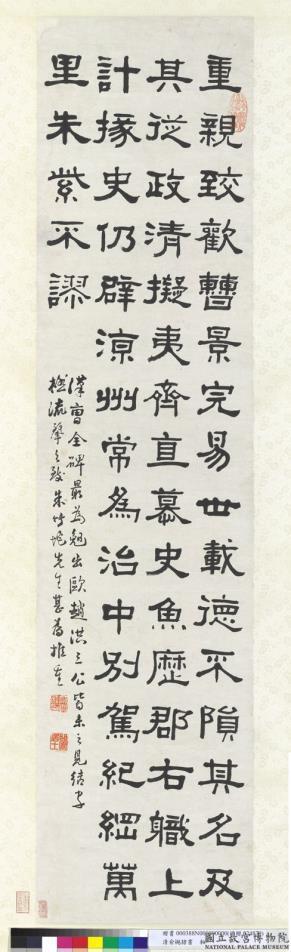 重親致歡曹景完易世載德不隕其名及
其從政清擬夷齊直慕史魚歷郡右職上
計掾史仍辟涼州常為治中別駕紀綱萬
里朱紫不謬
漢曹全碑最為晚出歐趙洪三公皆未之見結字
流麗先生甚為推重
國立故宮博物院
NATIONAL PALACE MUSEUM